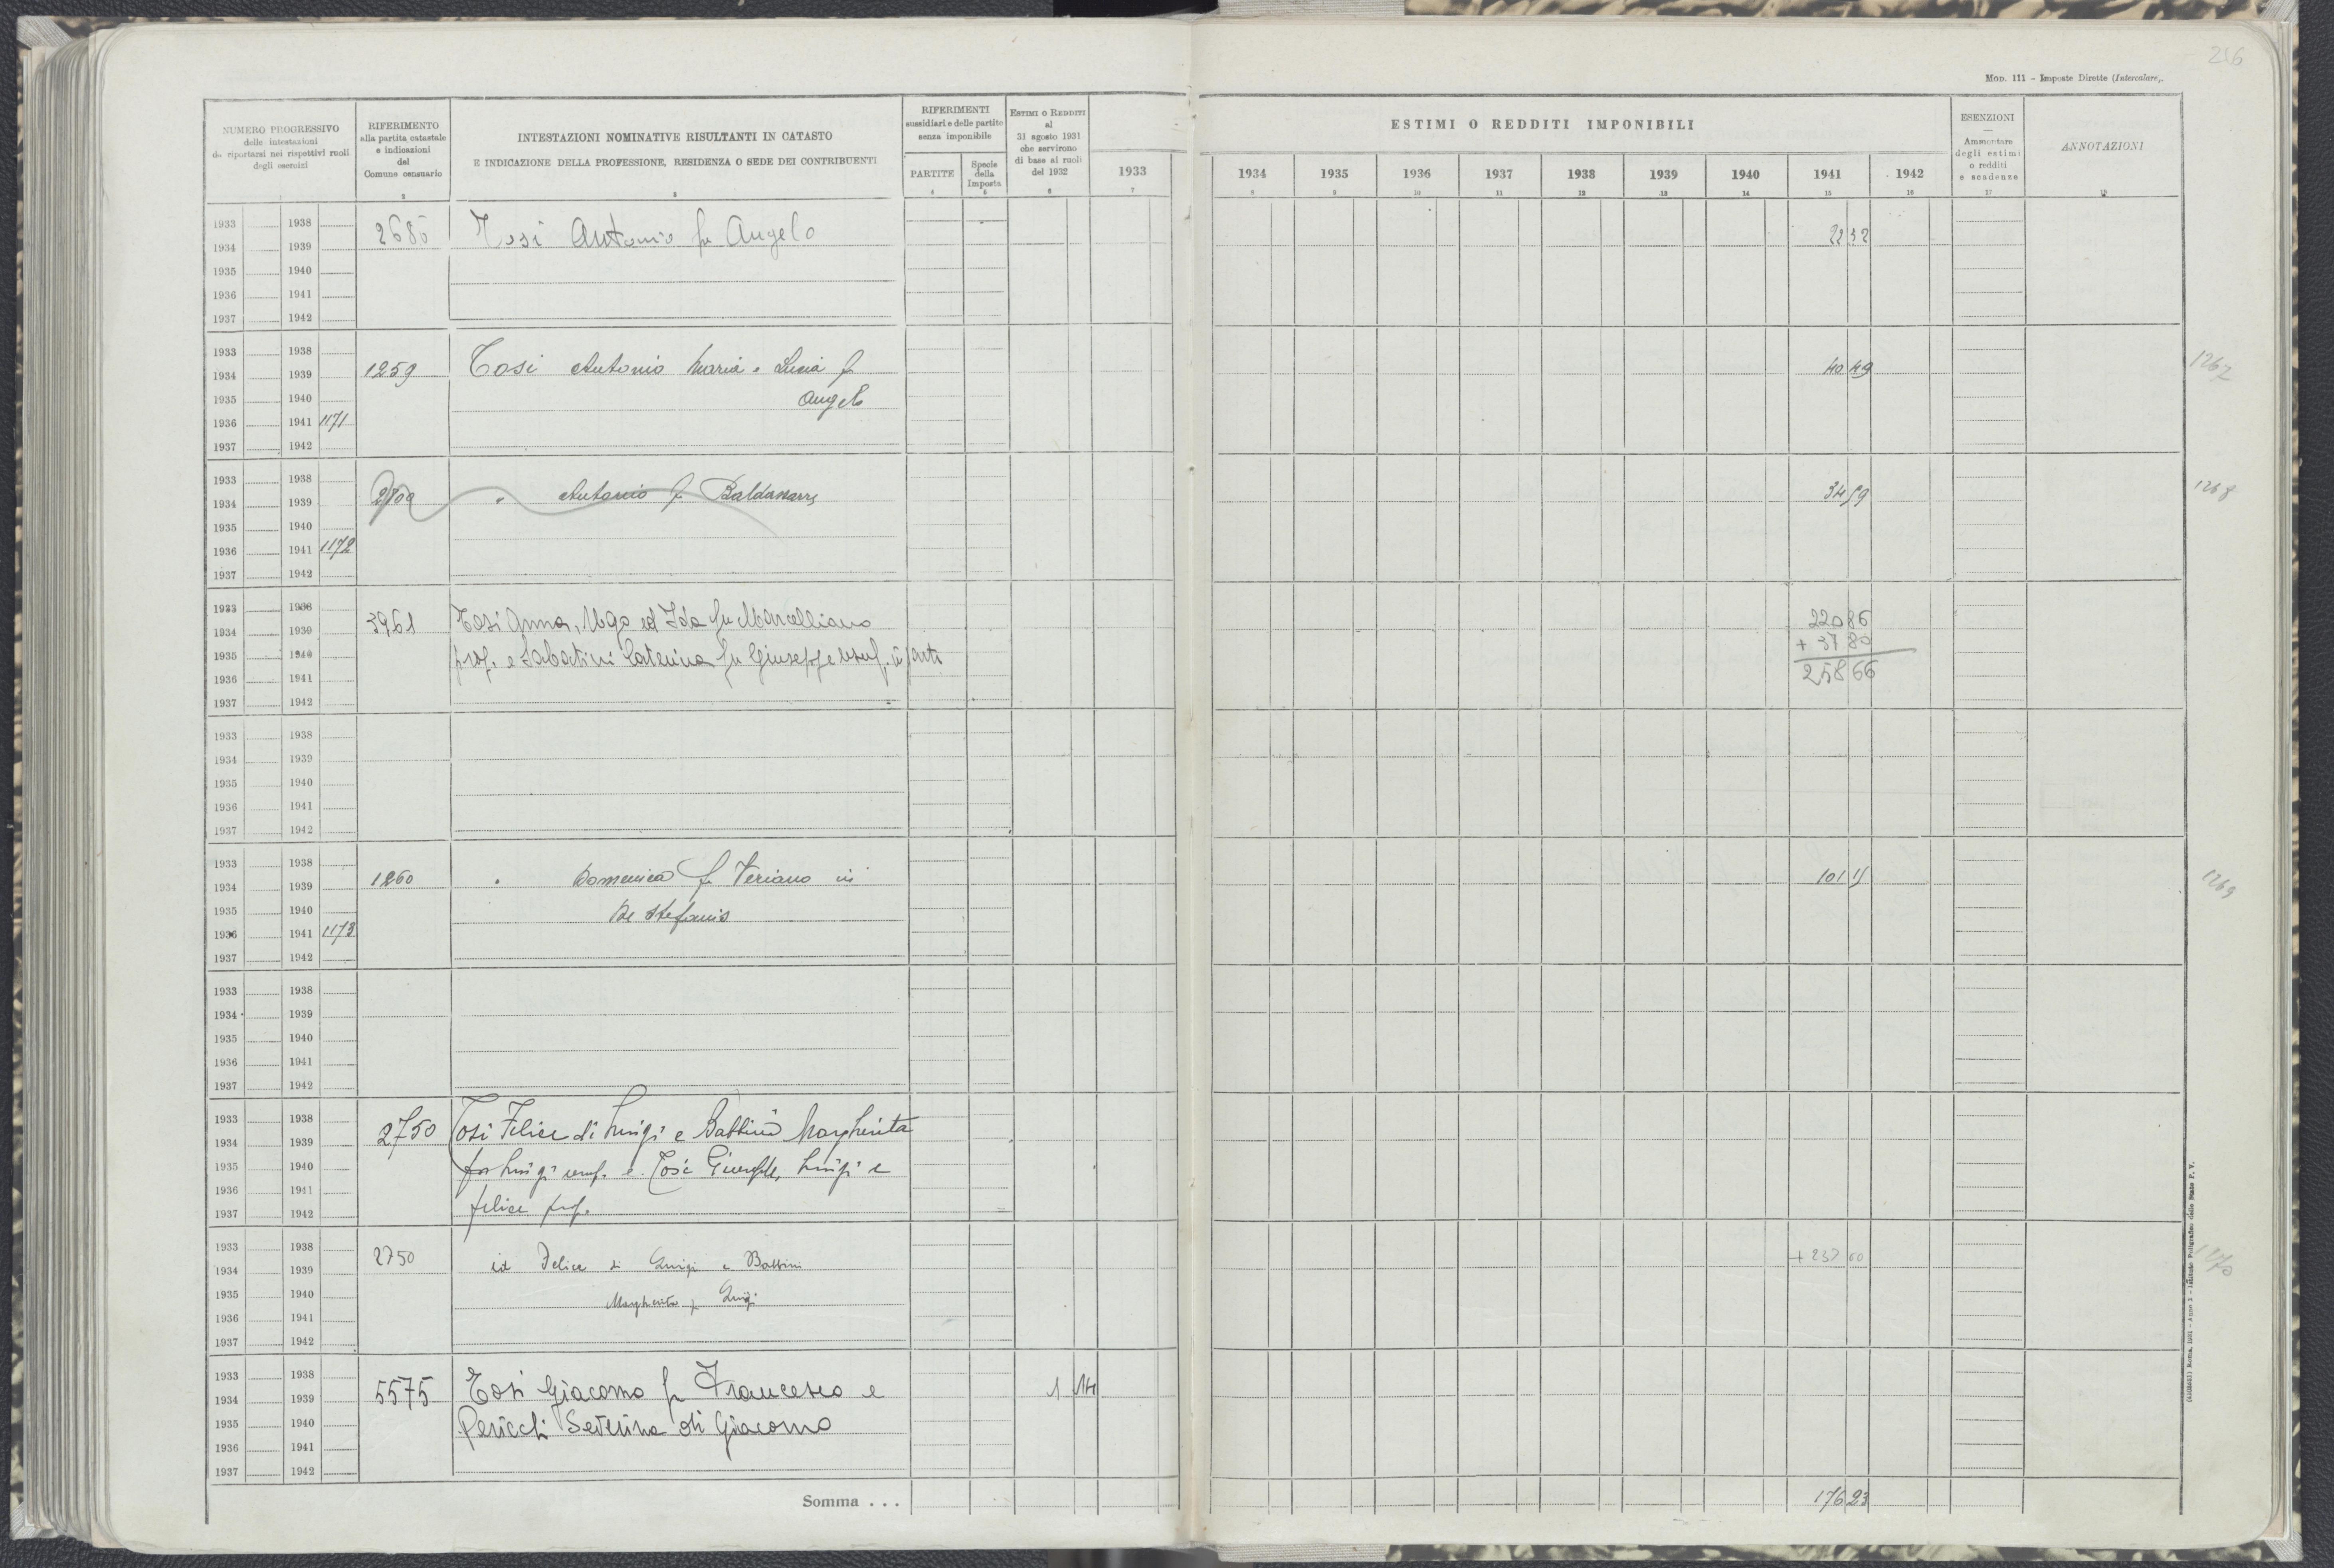 216
MOD. 111 - Imposte Dirette (Intercalare).
NUMERO PROGRESSIVO
delle intestazioni
da riportarsi nei rispettivi ruoli
degli esercizi
RIFERIMENTO
alla partita catastale
e indicazioni
del
Comune censuario
2
INTESTAZIONI NOMINATIVE RISULTANTI IN CATASTO
E INDICAZIONE DELLA PROFESSIONE, RESIDENZA O SEDE DEI CONTRIBUENTI
3
RIFERIMENTI
sussidiari e delle partite
senza imponibile
PARTITE
4
Specie
della
Imposta
5
ESTIMI O REDDITI
al
31 agosto 1931
che servirono
di base ai ruoli
del 1932
6
1933
7
ESTIMI O REDDITI IMPONIBILI
1934 1935 1936 1937 1938 1939 1940 1941 1942
8 9 10 11 12 13 14 15 16
ESENZIONI
—
Ammontare
degli estimi
o redditi
e scadenze
17
ANNOTAZIONI
18
1933 1938 2685 Tosi Antonio fu Angelo 22 32
1934 1939
1935 1940
1936 1941
1937 1942
1933 1938
1934 1939 1259 Tosi Antonio Maria e Lucia fu 40 49 1267
1935 1940 Angelo
1936 1941 1171
1937 1942
1933 1938
1934 1939 2700 " Antonio fu Baldassarre 34 59 1268
1935 1940
1936 1941 1172
1937 1942
1933 1938 220 86
1934 1939 3961 Tosi Anna, Ugo ed Ida fu Marcelliano + 37 80
1935 1940 prop. e Sabatini Caterina fu Giuseppe usuf. in parte
1936 1941 258 66
1937 1942
1933 1938
1934 1939
1935 1940
1936 1941
1937 1942
1933 1938
1934 1939 1260 " Domenica fu Veriano in 101 15 1269
1935 1940 De Stefanis
1936 1941 1173
1937 1942
1933 1938
1934 1939
1935 1940
1936 1941
1937 1942
1933 1938
1934 1939 2750 Tosi Felice di Luigi e Babbini Margherita
1935 1940 fu Luigi usuf. e Tosi Giuseppe, Luigi e
1936 1941
1937 1942 felice prop.
1933 1938 2750 id Felice di Luigi e Babbini + 237 60
1934 1939 1270
1935 1940 Margherita fu Luigi
1936 1941
1937 1942
1933 1938
1934 1939 5575 Tosi Giacomo fu Francesco e 1 14
1935 1940 Pericchi Severina di Giacomo
1936 1941
1937 1942
Somma . . . 176 23